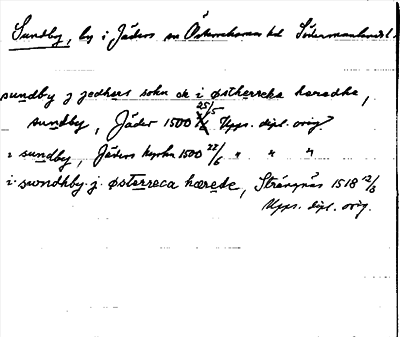 Sundby, by i Jäders sn Österrekarnes hd Södermanland.
sundby j jedhers sokn ok i østherreka haradhe,
sundby, Jäder 1500 25/5 Upps. dipl. orig
i sundby, Jäders kyrka 1500 22/6 " " "
i swndhby j østerreca hærede, Strängnäs 1518 12/3
Upps. dipl. orig.